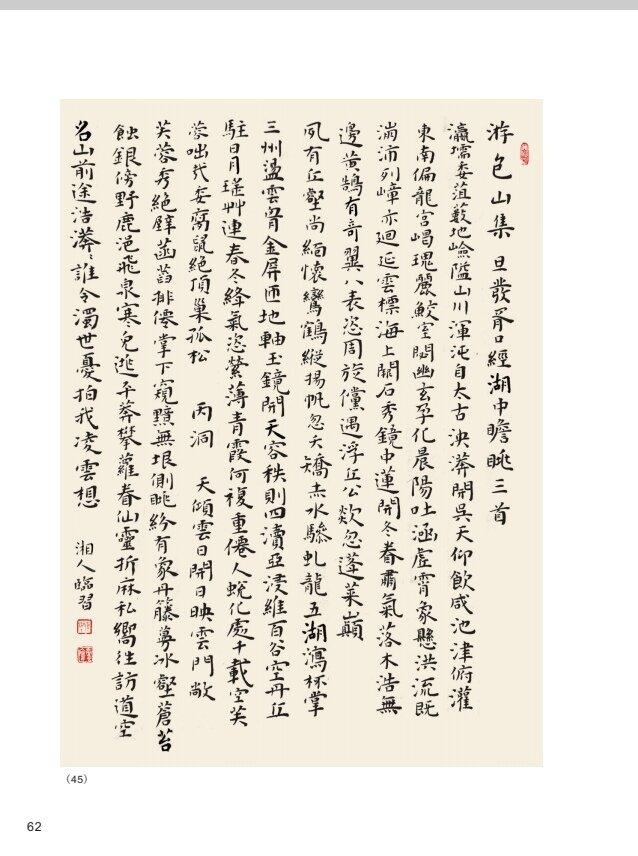 游包山集 旦發胥口經湖中瞻眺三首
瀛壖委菹藪地嶮隘山川渾沌自太古泱漭開吳天仰飲咸池津俯灌
東南偏龍宮嵑瑰麗鮫室閟幽玄孕化晨陽吐涵虛霄象懸洪流既
湍沛列嶂亦迴延雲標海上闕石秀鏡中蓮開冬眷肅氣落木浩無
邊黃鵠有奇翼八表恣周旋儻遇浮丘公欻忽蓬萊巔
夙有丘壑尚緬懷鸞鶴縱揚帆忽夭矯赤水驂虬龍五湖瀉杯掌
三州盪雲胷金屏匝地軸玉鏡開天容秩則四瀆亞浸維百谷空丹丘
駐日月瑤艸連春冬絳氣恣縈薄青霞何複重僊人蛻化處千載空芙
蓉咄哉委窩鼠絕頂巢孤松 丙洞 天傾雲日開日映雲門敞
芙蓉秀絕壁菡萏排僊掌下窺黯無垠側眺紛有象丹籐蕚冰壑蒼苔
蝕銀傍野鹿浥飛泉寒兔逃平莽攀蘿眷仙靈折麻私嚮往訪道空
名山前途浩漭漭誰令濁世憂拍我凌雲想 湘人臨習
（45）
62